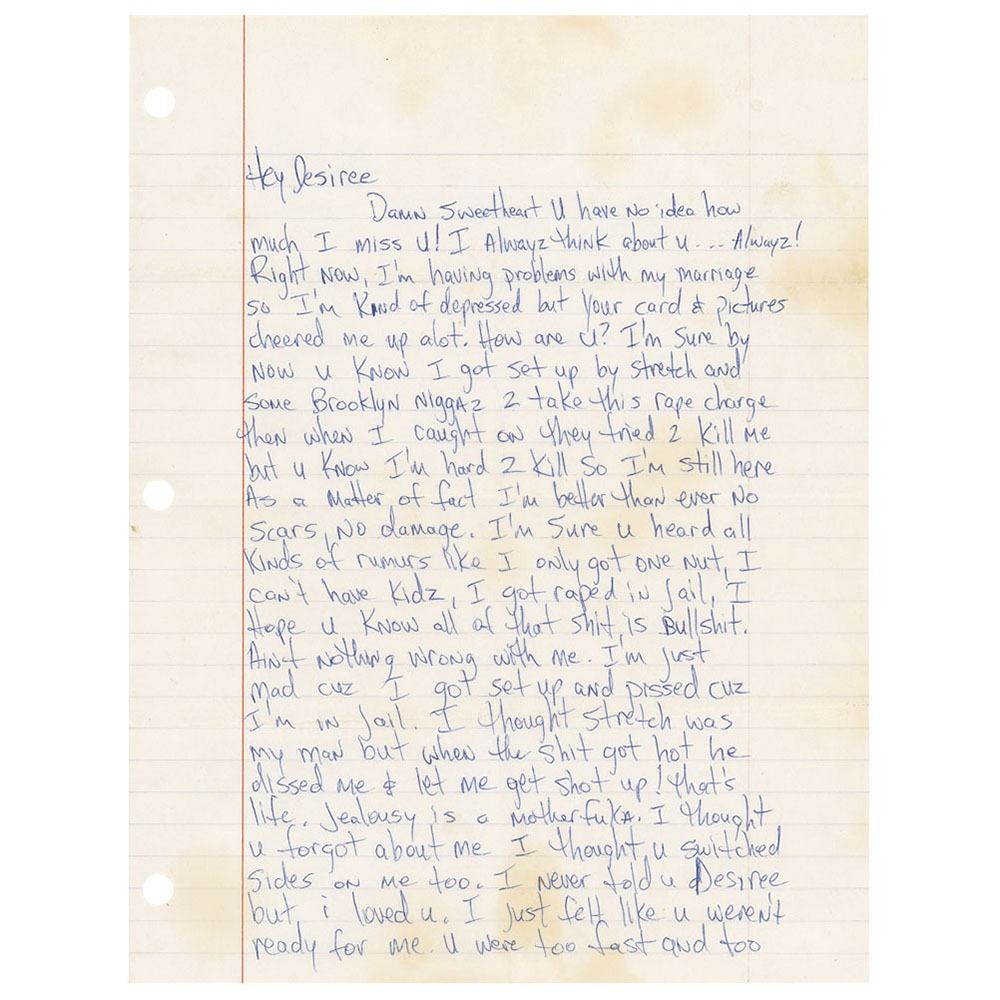 Hey Desiree
Damn Sweetheart U have No idea how
much I miss U! I Alwayz think about u... Alwayz!
Right Now, I'm having problems with my marriage
so I'm Kind of depressed but your card & pictures
cheered me up alot. How are U? I'm Sure by
Now u Know I got set up by stretch and
some Brooklyn Niggaz 2 take this rape charge
then when I caught on they tried 2 Kill me
but u Know I'm hard 2 Kill So I'm still here
As a Matter of fact I'm better than ever No
Scars, No damage. I'm Sure u heard all
Kinds of rumurs like I only got one Nut, I
can't have Kidz, I got raped in Jail, I
Hope u Know all of that shit is Bullshit.
Ain't Nothing wrong with me. I'm Just
mad cuz I got set up and pissed cuz
I'm in Jail. I thought Stretch was
my man but when the shit got hot he
dissed me & let me get shot up! that's
life. Jealousy is a MotherfuKA. I thought
u forgot about me I thought u switched
Sides on Me too. I Never told u Desiree
but i loved u. I just felt like u weren't
ready for me. U were too fast and too